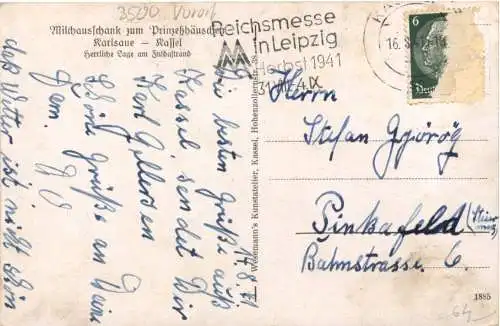 3500 Vorort
Milchausschank zum Prinzeßhäuschen
Karlsaue - Kassel
Herrliche Lage am Fuldastrand
Reichsmesse
in Leipzig
Herbst 1941
31.VIII.-4.IX
16.
6
Herrn
Stefan Györög
Pinkafeld
Bahnstrasse 6.
14.8.41
Die besten Grüße aus
Kassel sendet Dir
Karl
Schöne Grüße an Deine
Fam.
das Wetter ist nicht schön
Wesemann's Kunstatelier, Kassel, Hohenzollernstr.
1885
64